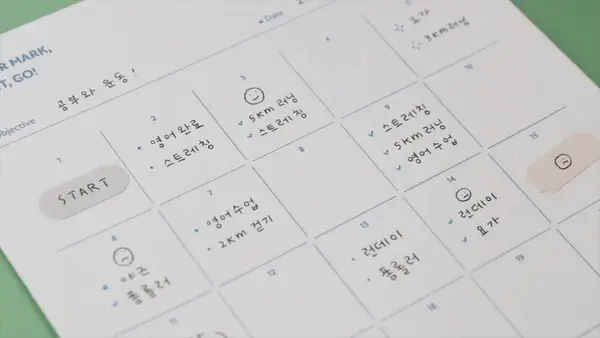 R MARK,
T, GO!
Date
공부와 운동!
bjective
1
START
2
영어완료
스트레칭
3
5km 러닝
스트레칭
4
요가
3km러닝
6
야근
폼롤러
7
영어수업
2km 걷기
8
9
스트레칭
5km 러닝
영어수업
10
11
12
13
런데이
폼롤러
14
런데이
요가
15
18
19